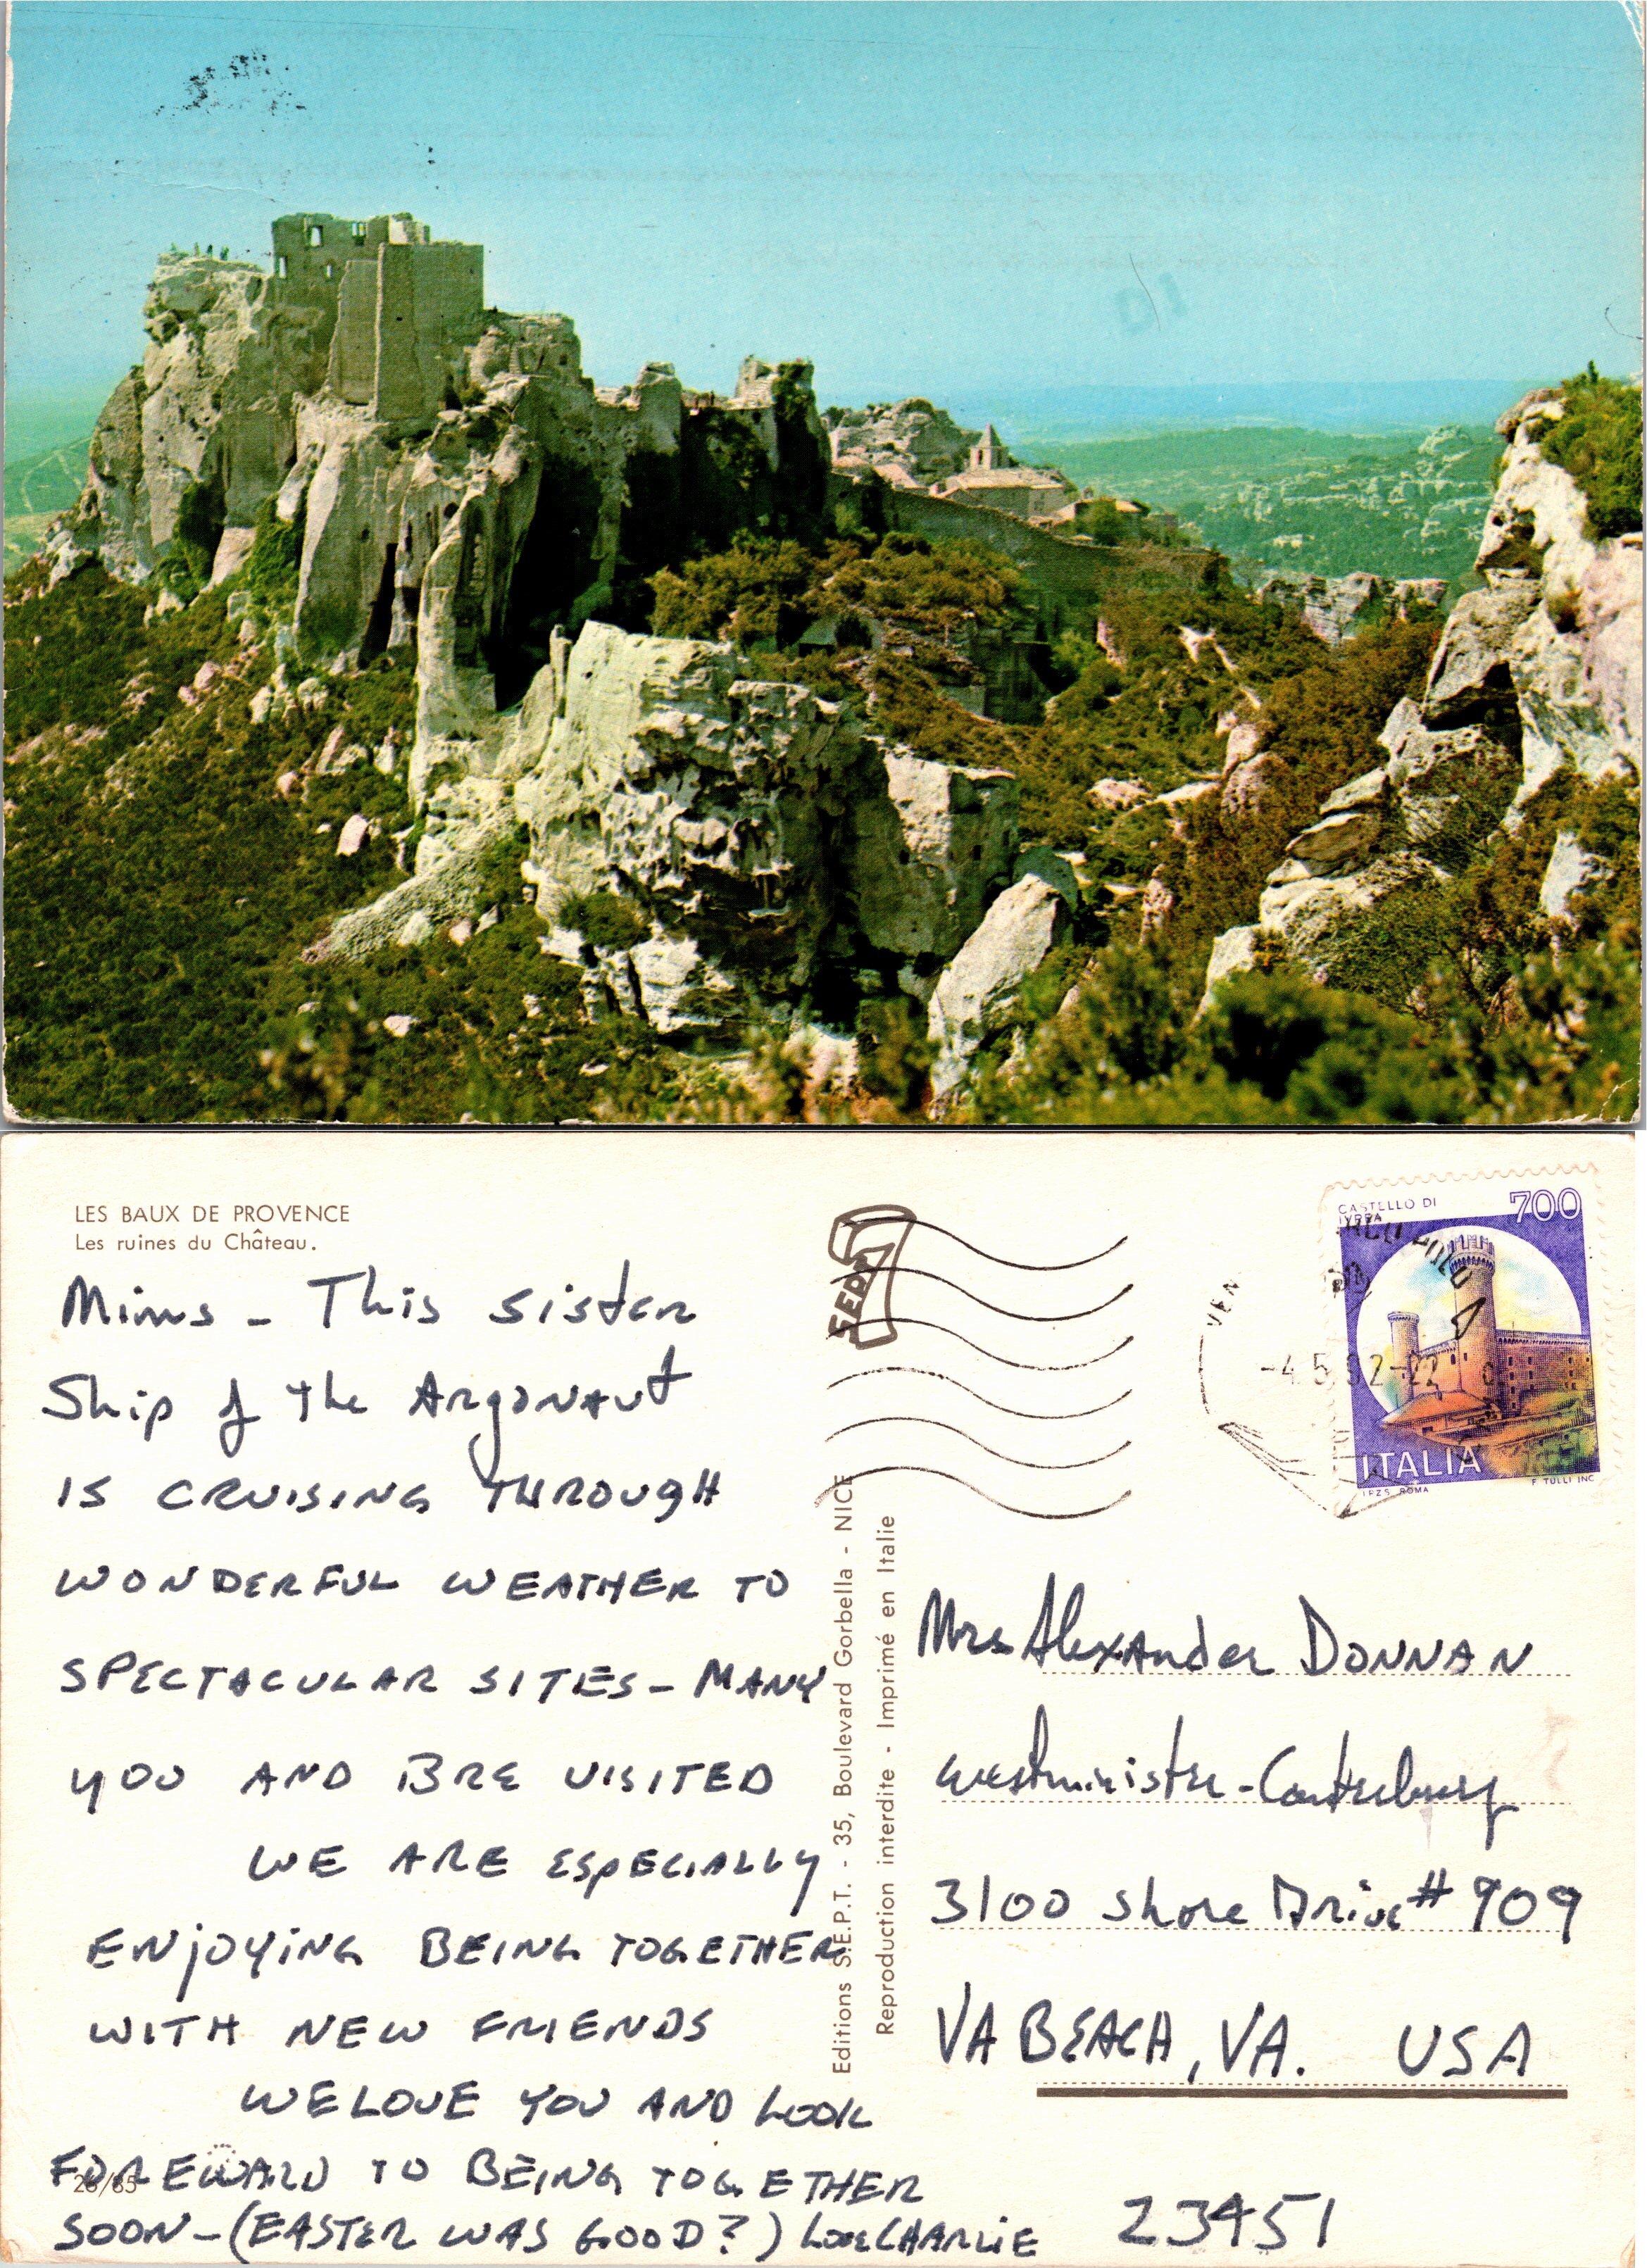 LES BAUX DE PROVENCE
Les ruines du Château.
Mims - This sister
Ship of the Argonaut
IS CRUISING THROUGH
WONDERFUL WEATHER TO
SPECTACULAR SITES - MANY
YOU AND BRE VISITED
WE ARE ESPECIALLY
ENJOYING BEING TOGETHER
WITH NEW FRIENDS
WE LOVE YOU AND LOOK
FOREWARD TO BEING TOGETHER
SOON - (EASTER WAS GOOD?) Love CHARLIE
26/85
SEPT
Editions S.E.P.T. - 35, Boulevard Gorbella - NICE
Reproduction interdite - Imprimé en Italie
CASTELLO DI
IVREA
700
ITALIA
I.P.Z.S. ROMA
F. TULLI INC
VEN
-4.5.92-22
Mrs Alexander DONNAN
Westminister-Canterbury
3100 Shore Drive #909
VA BEACH, VA. USA
23451